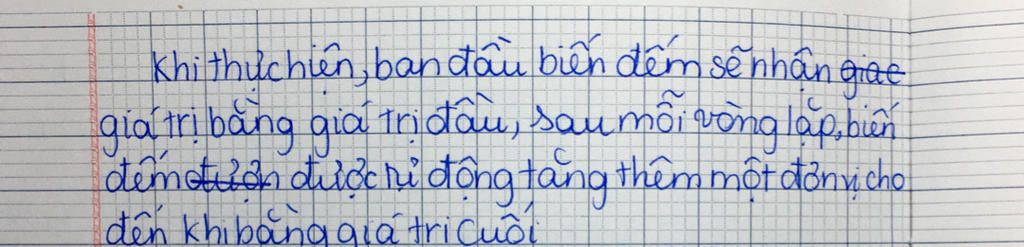 Khi thực hiện, ban đầu biến đếm sẽ nhận
giá trị bằng giá trị đầu, sau mỗi vòng lặp, biến
đếm được tự động tăng thêm một đơn vị cho
đến khi bằng giá trị cuối